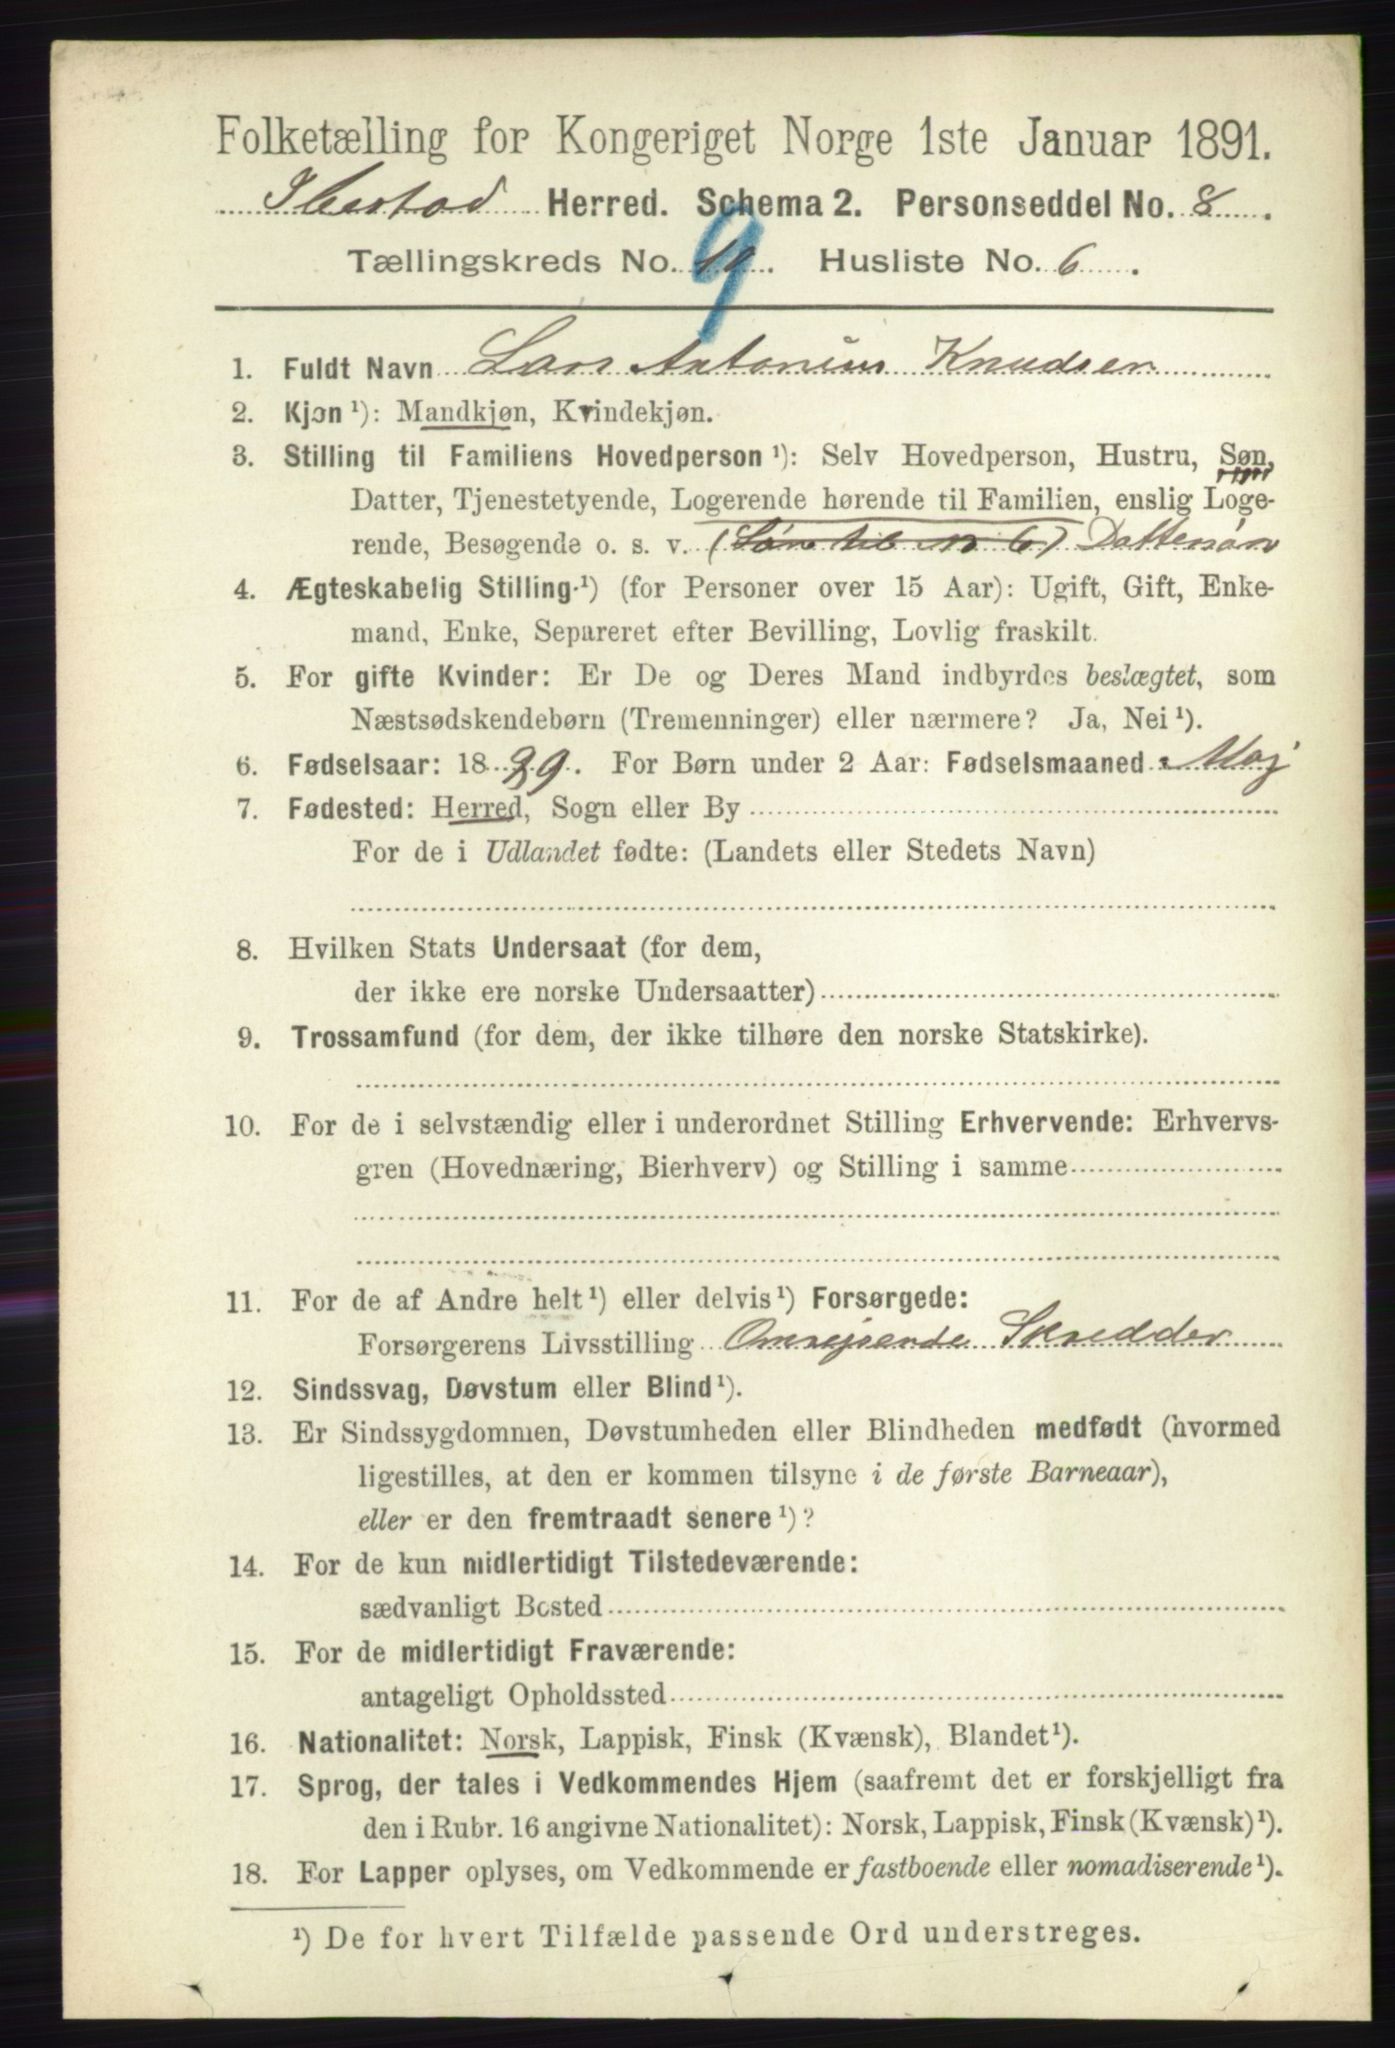 Folketælling for Kongeriget Norge 1ste Januar 1891.
Ibestad Herred. Schema 2. Personseddel No. 8.
Tællingskreds No. 10. Husliste No. 6.
9
1. Fuldt Navn Lars Antonius Knudsen
2. Kjøn ¹): Mandkjøn, Kvindekjøn.
3. Stilling til Familiens Hovedperson ¹): Selv Hovedperson, Hustru, Søn,
Datter, Tjenestetyende, Logerende hørende til Familien, enslig Loge-
rende, Besøgende o. s. v. (Søn til No 6) Dattersøn
4. Ægteskabelig Stilling ¹) (for Personer over 15 Aar): Ugift, Gift, Enke-
mand, Enke, Separeret efter Bevilling, Lovlig fraskilt.
5. For gifte Kvinder: Er De og Deres Mand indbyrdes beslægtet, som
Næstsødskendebørn (Tremenninger) eller nærmere? Ja, Nei ¹).
6. Fødselsaar: 18 89. For Børn under 2 Aar: Fødselsmaaned Maj
7. Fødested: Herred, Sogn eller By
For de i Udlandet fødte: (Landets eller Stedets Navn)
8. Hvilken Stats Undersaat (for dem,
der ikke ere norske Undersaatter)
9. Trossamfund (for dem, der ikke tilhøre den norske Statskirke).
10. For de i selvstændig eller i underordnet Stilling Erhvervende: Erhvervs-
gren (Hovednæring, Bierhverv) og Stilling i samme
11. For de af Andre helt ¹) eller delvis ¹) Forsørgede:
Forsørgerens Livsstilling Omrejsende Skredder
12. Sindssvag, Døvstum eller Blind ¹).
13. Er Sindssygdommen, Døvstumheden eller Blindheden medfødt (hvormed
ligestilles, at den er kommen tilsyne i de første Barneaar),
eller er den fremtraadt senere ¹)?
14. For de kun midlertidigt Tilstedeværende:
sædvanligt Bosted
15. For de midlertidigt Fraværende:
antageligt Opholdssted
16. Nationalitet: Norsk, Lappisk, Finsk (Kvænsk), Blandet ¹).
17. Sprog, der tales i Vedkommendes Hjem (saafremt det er forskjelligt fra
den i Rubr. 16 angivne Nationalitet): Norsk, Lappisk, Finsk (Kvænsk) ¹).
18. For Lapper oplyses, om Vedkommende er fastboende eller nomadiserende ¹).
¹) De for hvert Tilfælde passende Ord understreges.